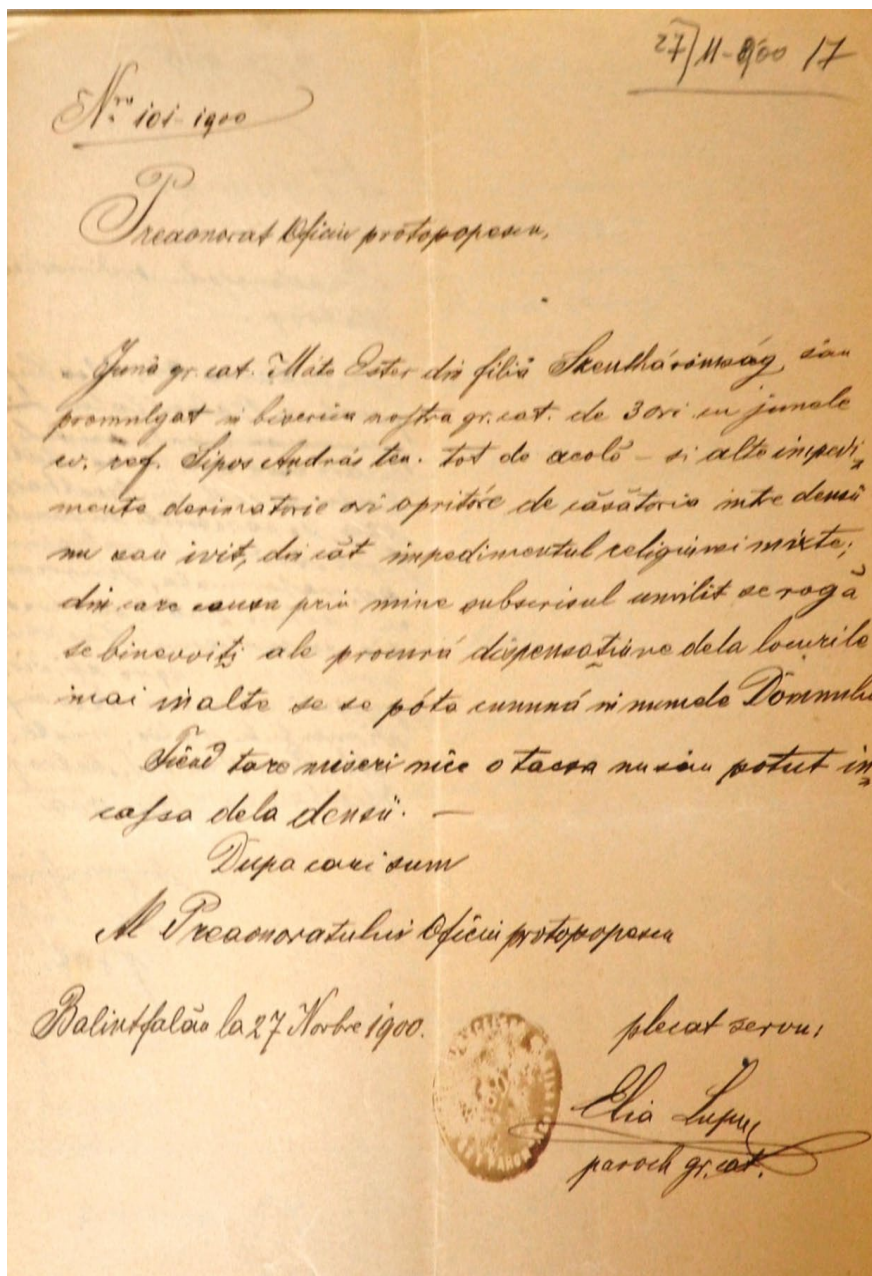 27/11-900 17
Nro 101-1900
Preaonorat Oficiu protopopescu,
Juna gr. cat. Máte Ester din filiă Szentháromság, sau
promulgat in biserica nostra gr. cat. de 3 ori cu junele
ev. ref. Sipos András ten. tot de acolo – si alte impedi-
mente derimatorie ori opritóre de căsătoria intre densii
nu sau ivit, din cât impedimentul religiunei mixte;
din care causa prin mine subscrisul umilit se rogă
se binevoiți ale procură dispensațiune dela locurile
mai inalte se se póta cunună in numele Domnului
Fiind tare miseri nice o tacsa nu sau potut in-
cassa dela densii. —
Dupa cari sum
Al Preaonoratului Oficiu protopopescu
Balintfalău la 27 Novbre 1900.
plecat servu,
Elia Lupu
paroch gr. cat.